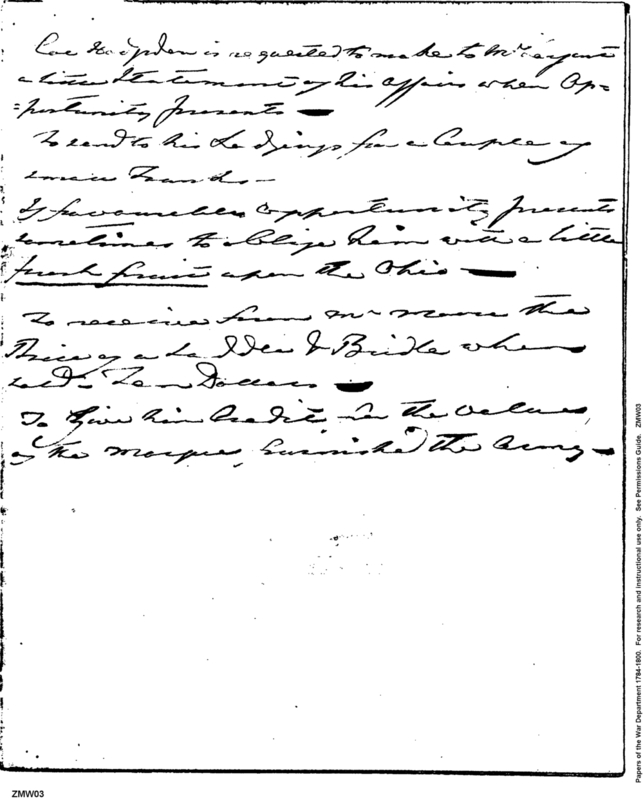 Col Hodgdon is requested to make to Mr Sargent
a little Statement of his affairs when Op=
=portunity presents —
To send to his Lodgings for a Couple of
small Trunks —
If favourable opportunity presents
sometimes to oblige him with a little
fresh fruit upon the Ohio —
To receive from Mr the
Price of a Saddle & Bridle when
sold – Ten Dollars —
To Give him Credit for the value
of the Marquee furnished the Army —
ZMW03
Papers of the War Department 1784-1800. For research and instructional use only. See Permissions Guide. ZMW03